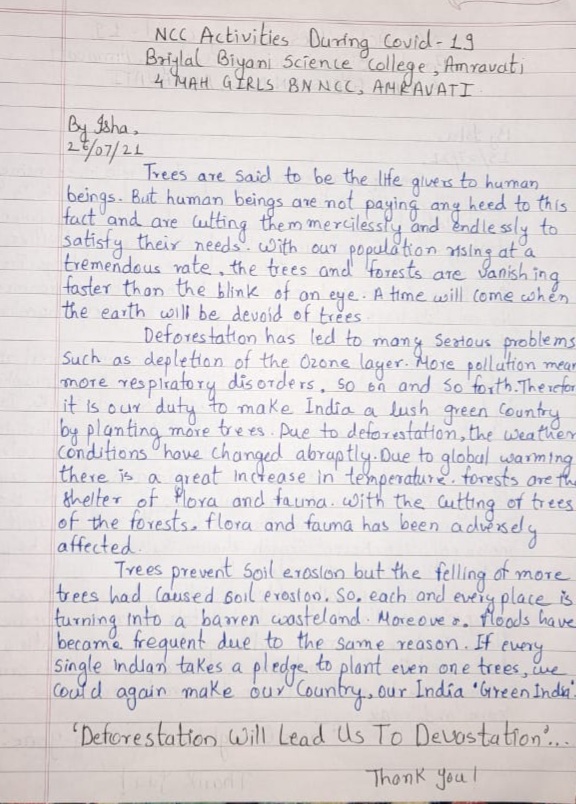 NCC Activities During Covid-19
Brijlal Biyani Science College, Amravati
4 MAH GIRLS BN NCC, AMRAVATI
By Isha,
26/07/21
Trees are said to be the life givers to human
beings. But human beings are not paying any heed to this
fact and are cutting them mercilessly and endlessly to
satisfy their needs. With our population rising at a
tremendous rate, the trees and forests are vanishing
faster than the blink of an eye. A time will come when
the earth will be devoid of trees.
Deforestation has led to many serious problems
such as depletion of the Ozone layer. More pollution mean
more respiratory disorders, so on and so forth. Therefor
it is our duty to make India a lush green country
by planting more trees. Due to deforestation, the weather
conditions have changed abraptly. Due to global warming
there is a great increase in temperature. forests are the
shelter of flora and fauna. With the cutting of trees
of the forests. flora and fauna has been adversely
affected.
Trees prevent soil erosion but the felling of more
trees had caused soil erosion. So, each and every place is
turning into a barren wasteland. Moreover, floods have
become frequent due to the same reason. If every
single indian takes a pledge to plant even one trees, we
could again make our Country, our India 'Green India'.
'Deforestation Will Lead Us To Devastation'...
Thank you!